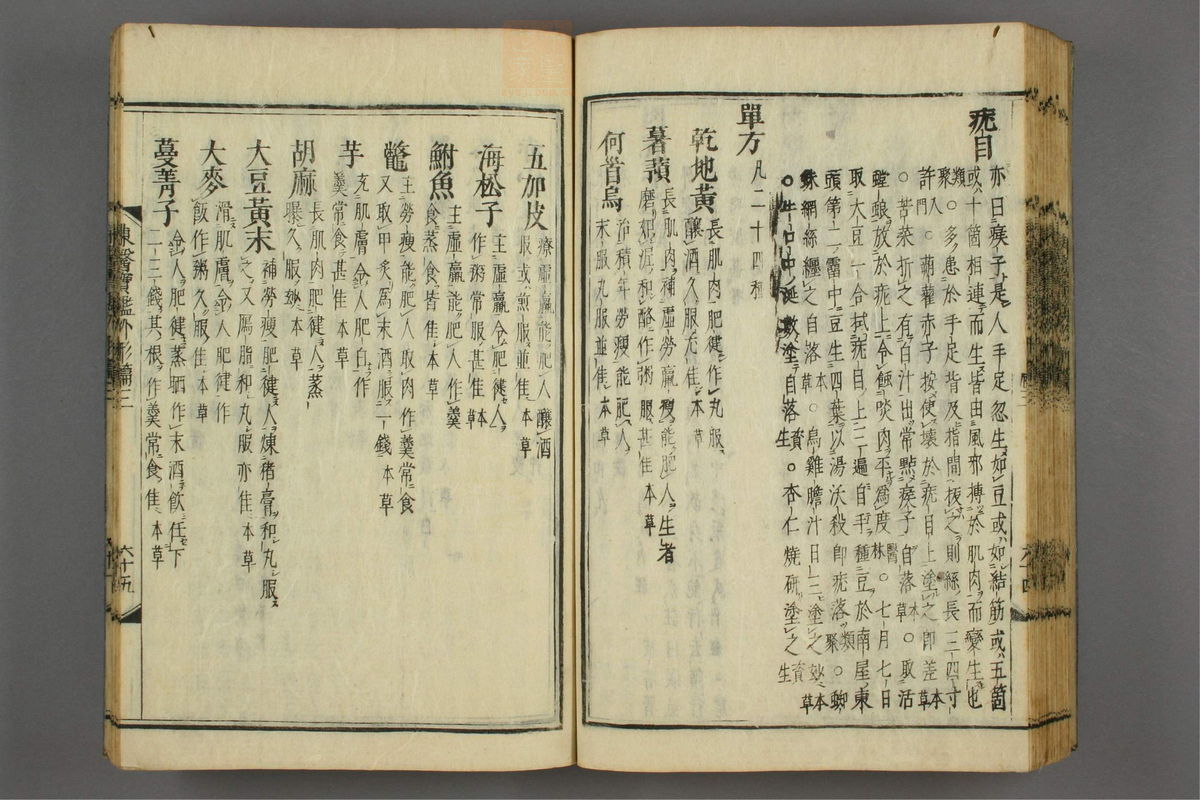 疣目 亦曰瘊子是人手足忽生如豆或如結筋或五箇
或十箇相連而生皆由風邪搏於肌肉而變生也
類聚○多患於手足背及指間拔之則絲長三四寸
許入門○蒴藋赤子按使壞於疣目上塗之卽差本草
○苦菜折之有白汁出常點瘊子自落本草○取活
螳蜋放於疣上令蝕啖肉平爲度醫林○七月七日
取大豆一合拭疣目上三遍自手種豆於南屋東
頭第二霤中豆生四葉以湯沃殺卽疣落類聚○蜘
蛛網絲纏之自落本草○烏雞膽汁日三塗之妙本草
○牛口中涎數塗自落資生○杏仁燒硏塗之資生
單方 凡二十四種
乾地黃 長肌肉肥健作丸服
釀酒久服尤佳本草
薯蕷 長肌肉補勞羸瘦能肥人生者
磨如泥和酪作粥服甚佳本草
何首烏 治積年勞瘦能肥人
末服丸服並佳本草
五加皮 療虛羸能肥人釀酒
服或煎服並佳本草
海松子 主虛羸令肥健人
作粥常服甚佳本草
鮒魚 主虛羸能肥人作羹
食蒸食皆佳本草
鼈 主勞瘦能肥人取肉作羹常食
又取甲炙爲末酒服一錢本草
芋 充肌膚令人肥白作
羹常食甚佳本草
胡麻 長肌肉肥健人蒸
曝久服妙本草
大豆黃末 補勞瘦肥健人煉猪膏和丸服
之又厲脂和丸服亦佳本草
大麥 滑肌膚令人肥健作
飯作粥久服佳本草
蔓菁子 令人肥健蒸晒作末酒飮任下
二三錢其根作羹常食佳本草
東醫寶鑑外形篇三
六十五